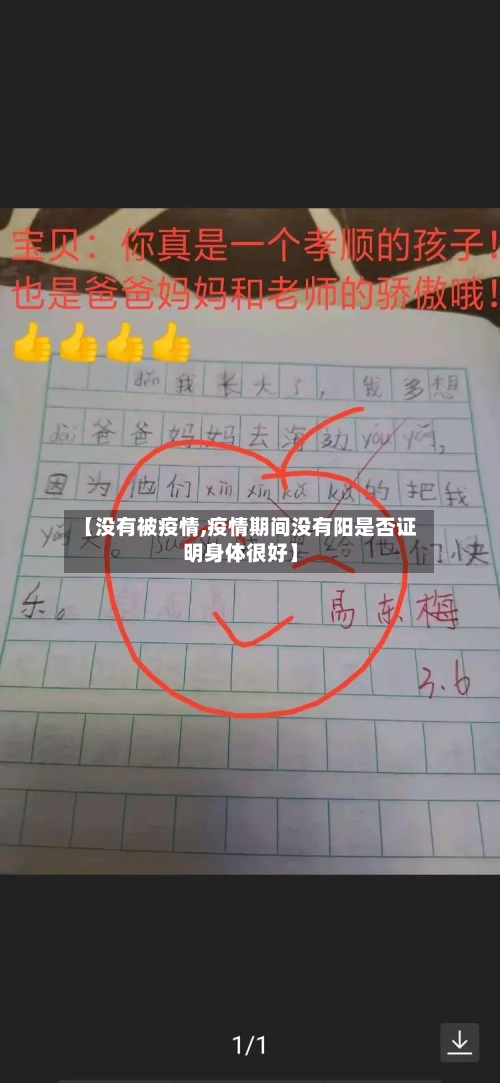 宝贝：你真是一个孝顺的孩子！
也是爸爸妈妈和老师的骄傲哦！
我长大了，我多想
dài爸爸妈妈去海边yóu yǒng,
因为他们xīn xīn kǔ kǔ的把我
【没有被疫情,疫情期间没有阳是否证
明身体很好】
给他们快
乐。
马东梅
3.6
1/1